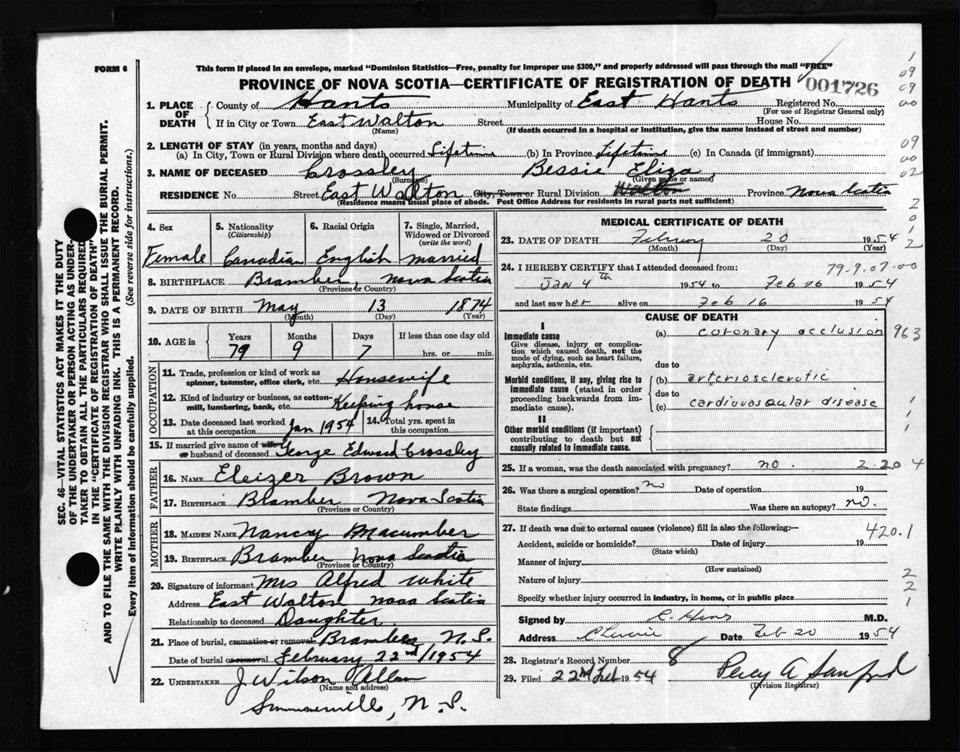 FORM 6
This form if placed in an envelope, marked "Dominion Statistics—Free, penalty for improper use $300," and properly addressed will pass through the mail "FREE"
PROVINCE OF NOVA SCOTIA—CERTIFICATE OF REGISTRATION OF DEATH
001726
1. PLACE OF DEATH
County of Hants Municipality of East Hants Registered No.
(For use of Registrar General only)
If in City or Town East Walton Street House No.
(Name) (If death occurred in a hospital or institution, give the name instead of street and number)
2. LENGTH OF STAY (in years, months and days)
(a) In City, Town or Rural Division where death occurred Lifetime (b) In Province Lifetime (c) In Canada (if immigrant)
3. NAME OF DECEASED Crossley Bessie Eliza
(Surname) (Given name or names)
RESIDENCE No Street East Walton City, Town or Rural Division Walton Province Nova Scotia
(Residence means usual place of abode. Post Office Address for residents in rural parts not sufficient)
4. Sex Female
5. Nationality (Citizenship) Canadian
6. Racial Origin English
7. Single, Married, Widowed or Divorced (write the word) married
8. BIRTHPLACE Bramber, Nova Scotia
(Province or Country)
9. DATE OF BIRTH May 13 1874
(Month) (Day) (Year)
10. AGE in Years 79 Months 9 Days 7 If less than one day old hrs. or min.
OCCUPATION
11. Trade, profession or kind of work as spinner, teamster, office clerk, etc. Housewife
12. Kind of industry or business, as cotton-mill, lumbering, bank, etc. Keeping house
13. Date deceased last worked at this occupation Jan 1954 14. Total yrs. spent in this occupation
15. If married give name of wife or husband of deceased George Edward Crossley
FATHER
16. Name Eleizer Brown
17. Birthplace Bramber Nova Scotia
(Province or Country)
MOTHER
18. Maiden Name Nancy Macumber
19. Birthplace Bramber Nova Scotia
(Province or Country)
20. Signature of informant Mrs Alfred White
Address East Walton Nova Scotia
Relationship to deceased Daughter
21. Place of burial, cremation or removal Bramber N.S.
Date of burial or removal February 22nd/1954
22. UNDERTAKER J Wilson Allen
(Name and address)
Summerville, N.S.
MEDICAL CERTIFICATE OF DEATH
23. DATE OF DEATH February 20 1954
(Month) (Day) (Year)
24. I HEREBY CERTIFY that I attended deceased from: 79-9-07-00
Jan 4th 1954 to Feb 16 1954
and last saw her alive on Feb 16 1954
CAUSE OF DEATH
I
Immediate cause
Give disease, injury or complication which caused death, not the mode of dying, such as heart failure, asphyxia, asthenia, etc.
(a) coronary occlusion 963
due to
Morbid conditions, if any, giving rise to immediate cause (stated in order proceeding backwards from immediate cause)
(b) arteriosclerotic
due to
(c) cardiovascular disease
II
Other morbid conditions (if important) contributing to death but not causally related to immediate cause.
25. If a woman, was the death associated with pregnancy? no. 2-204
26. Was there a surgical operation? no Date of operation 19
State findings Was there an autopsy? no.
27. If death was due to external causes (violence) fill in also the following:— 420.1
Accident, suicide or homicide? Date of injury 19
(State which)
Manner of injury
(How sustained)
Nature of injury
Specify whether injury occurred in industry, in home, or in public place
Signed by M.D.
Address Date Feb 20 1954
28. Registrar's Record Number 8
29. Filed 22nd Feb 1954 Percy A Sanford
(Division Registrar)
SEC. 46—VITAL STATISTICS ACT MAKES IT THE DUTY OF THE UNDERTAKER OR PERSON ACTING AS UNDERTAKER TO OBTAIN ALL THE PARTICULARS REQUIRED IN THE "CERTIFICATE OF REGISTRATION OF DEATH" AND TO FILE THE SAME WITH THE DIVISION REGISTRAR WHO SHALL ISSUE THE BURIAL PERMIT.
WRITE PLAINLY WITH UNFADING INK. THIS IS A PERMANENT RECORD.
Every item of Information should be carefully supplied. (See reverse side for instructions.)